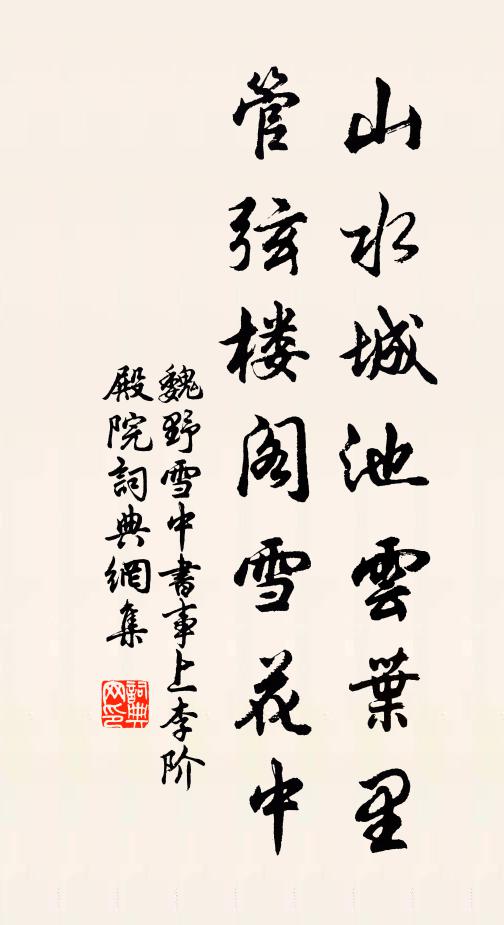 山水城池雲葉里
管弦楼阁雪花中
魏野雪中書事上李阶
殿院詞典網集
詞典网印